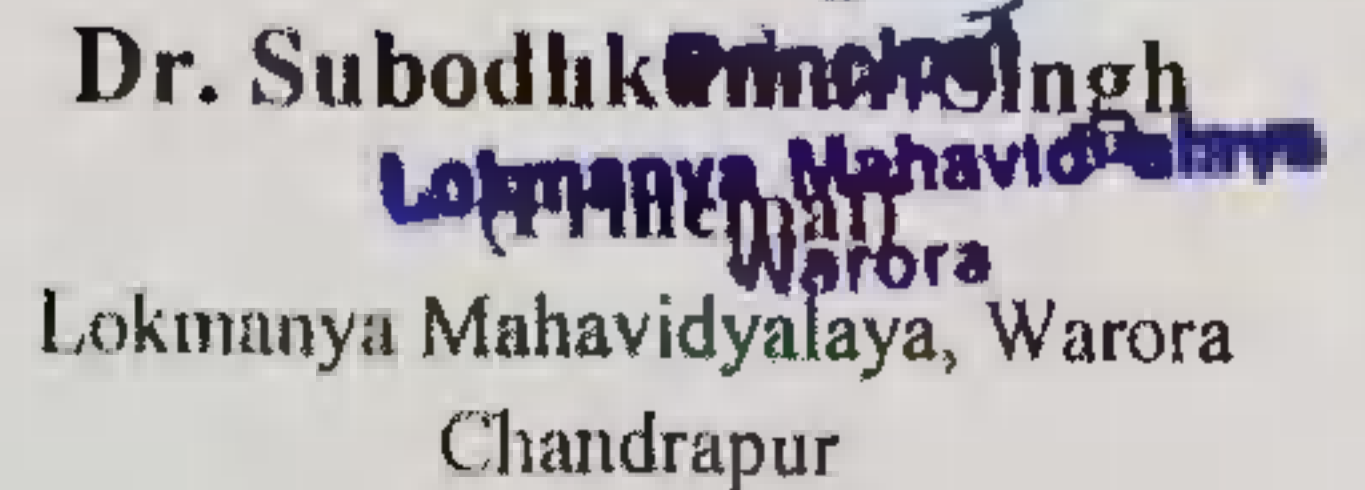 Dr. Subodhk Singh
Principal
Lokmanya Mahavidyalaya
Warora
Lokmanya Mahavidyalaya, Warora
Chandrapur